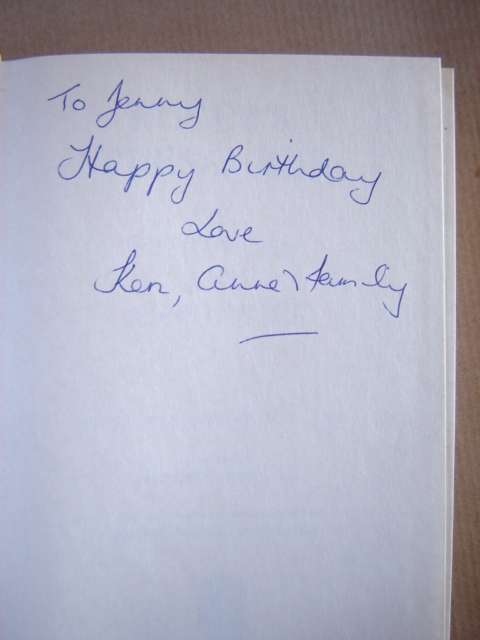 To Jenny
Happy Birthday
Love
Ken, Anne & family